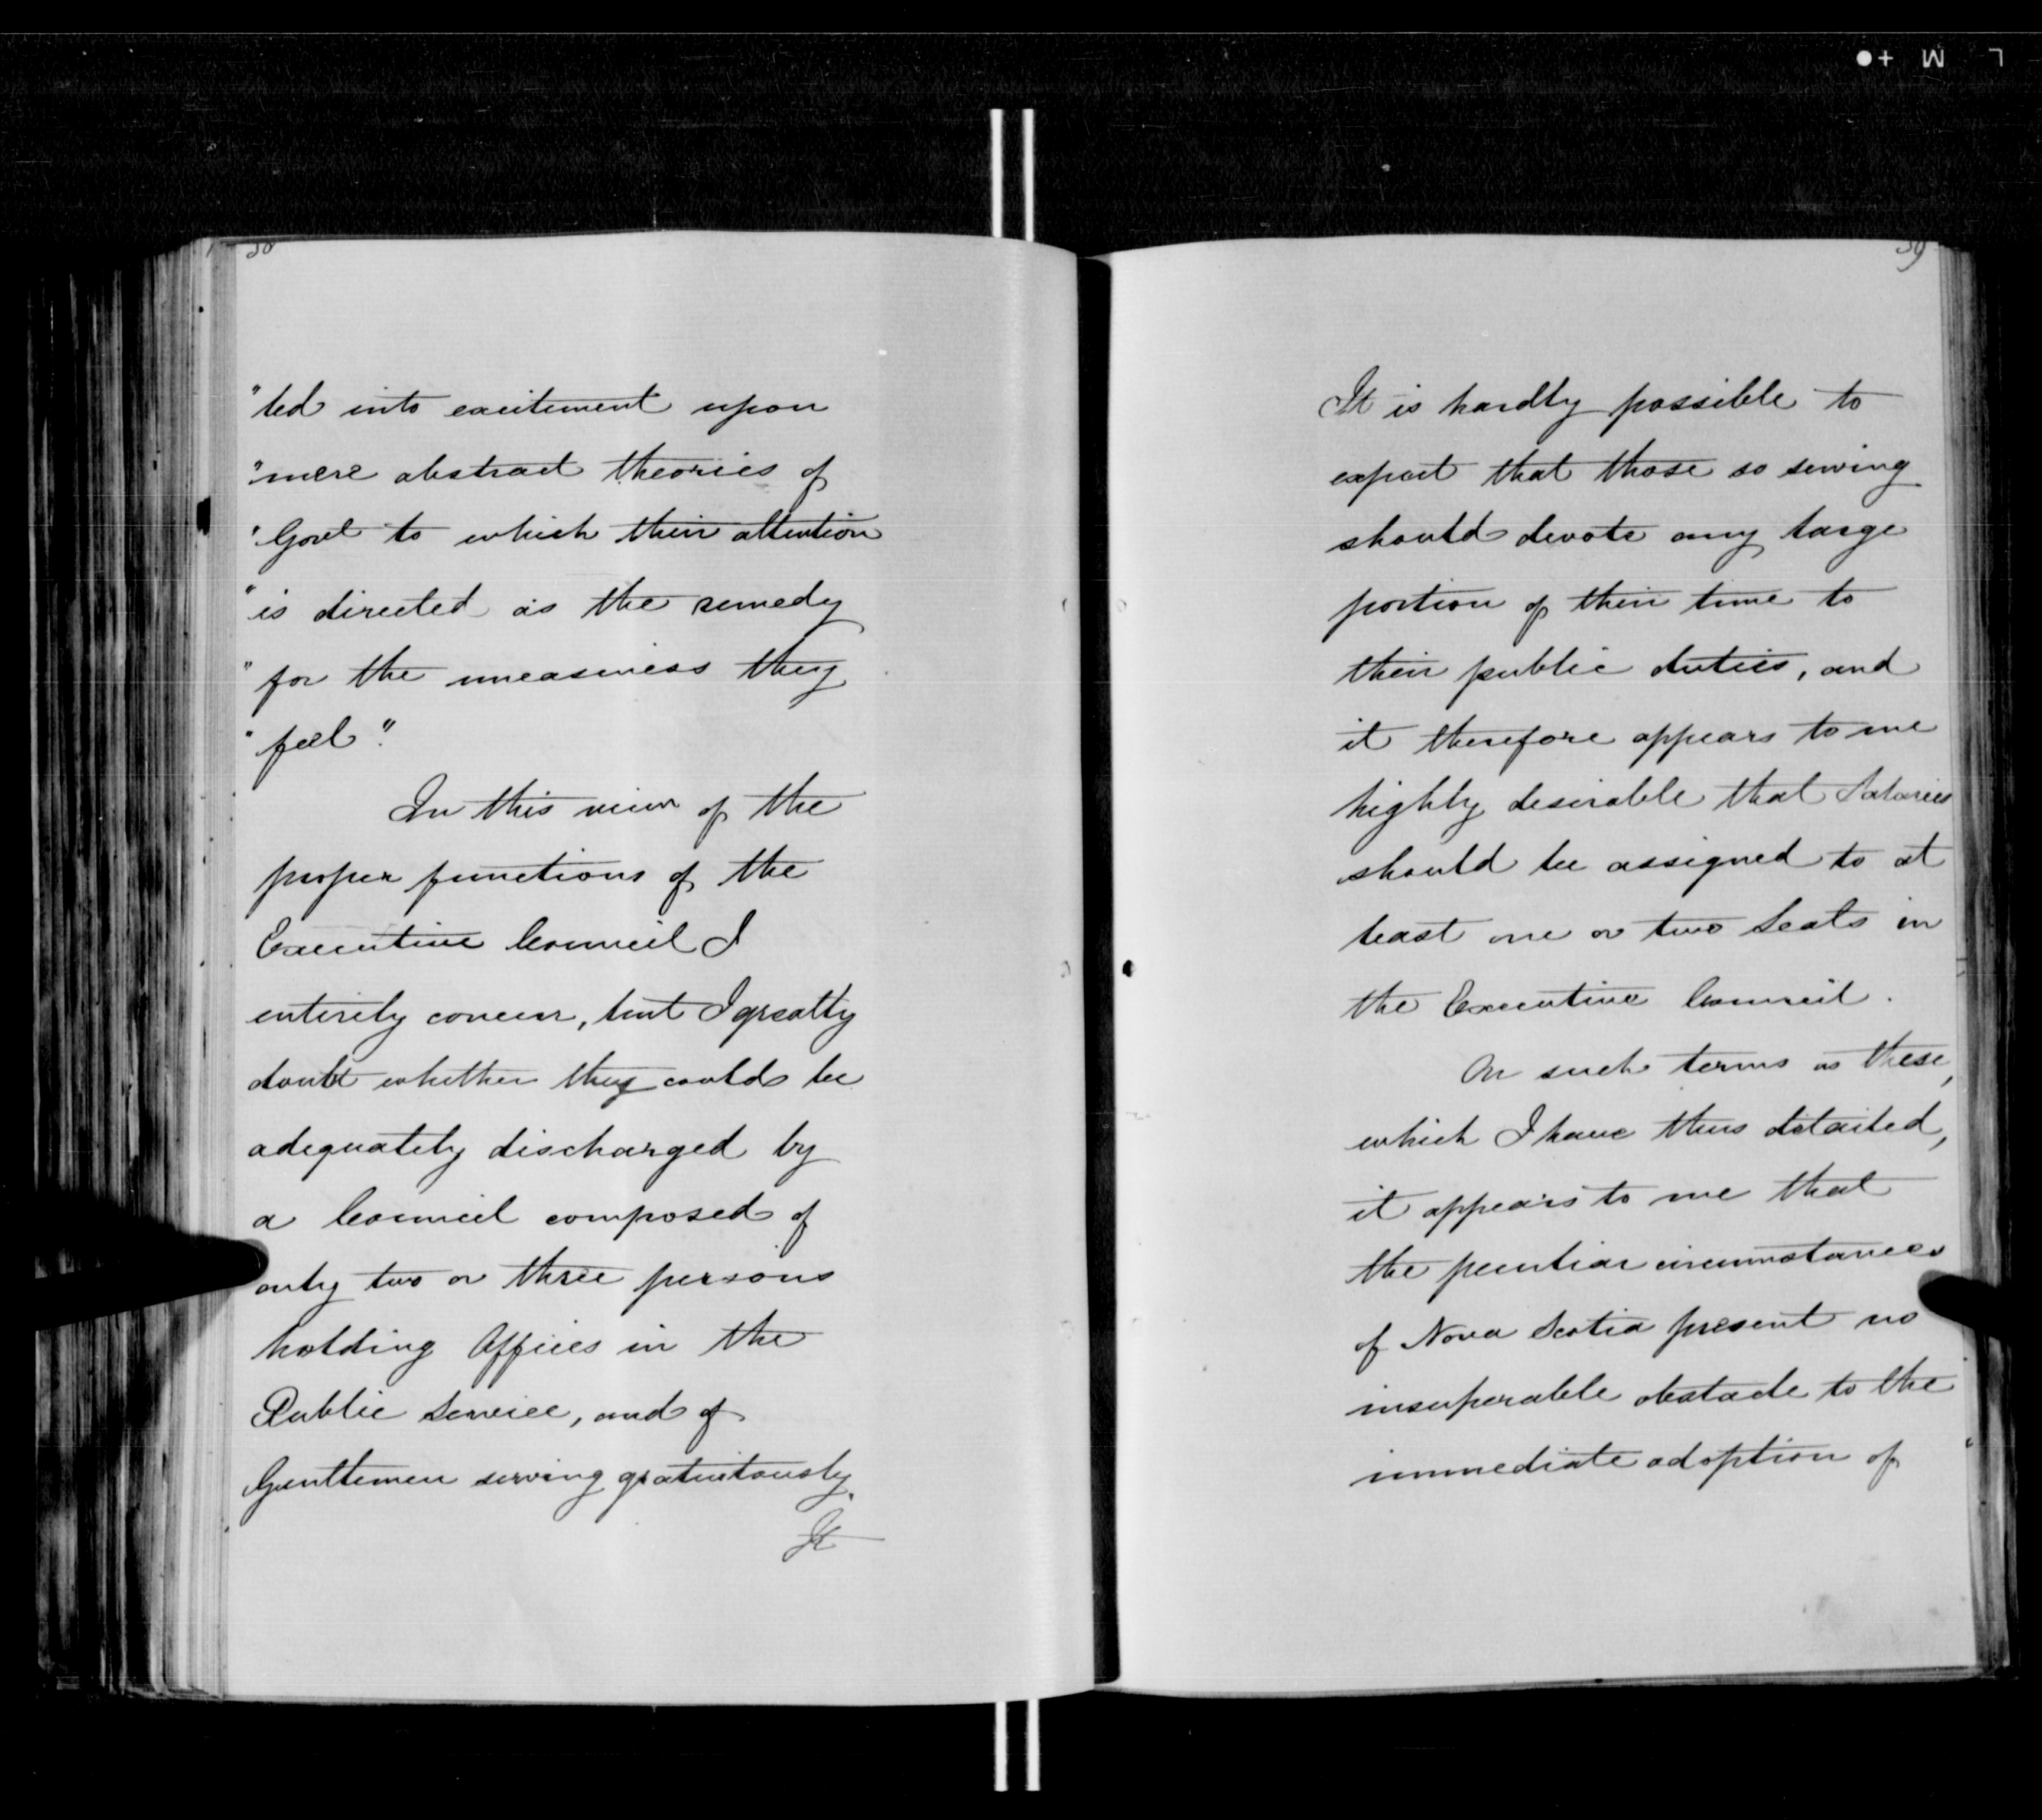 38
"led into excitement upon
"mere abstract theories of
"Govt to which their attention
"is directed as the remedy
"for the uneasiness they
"feel".
In this view of the
proper functions of the
Executive Council I
entirely concur, but I greatly
doubt whether they could be
adequately discharged by
a Council composed of
only two or three persons
holding Offices in the
Public Service, and of
Gentlemen serving gratuitously.
It
39
It is hardly possible to
expect that those so serving
should devote any large
portion of their time to
their public duties, and
it therefore appears to me
highly desirable that Salaries
should be assigned to at
least one or two Seats in
the Executive Council.
On such terms as these,
which I have thus detailed,
it appears to me that
the peculiar circumstances
of Nova Scotia present no
insuperable obstacle to the
immediate adoption of
L M +●